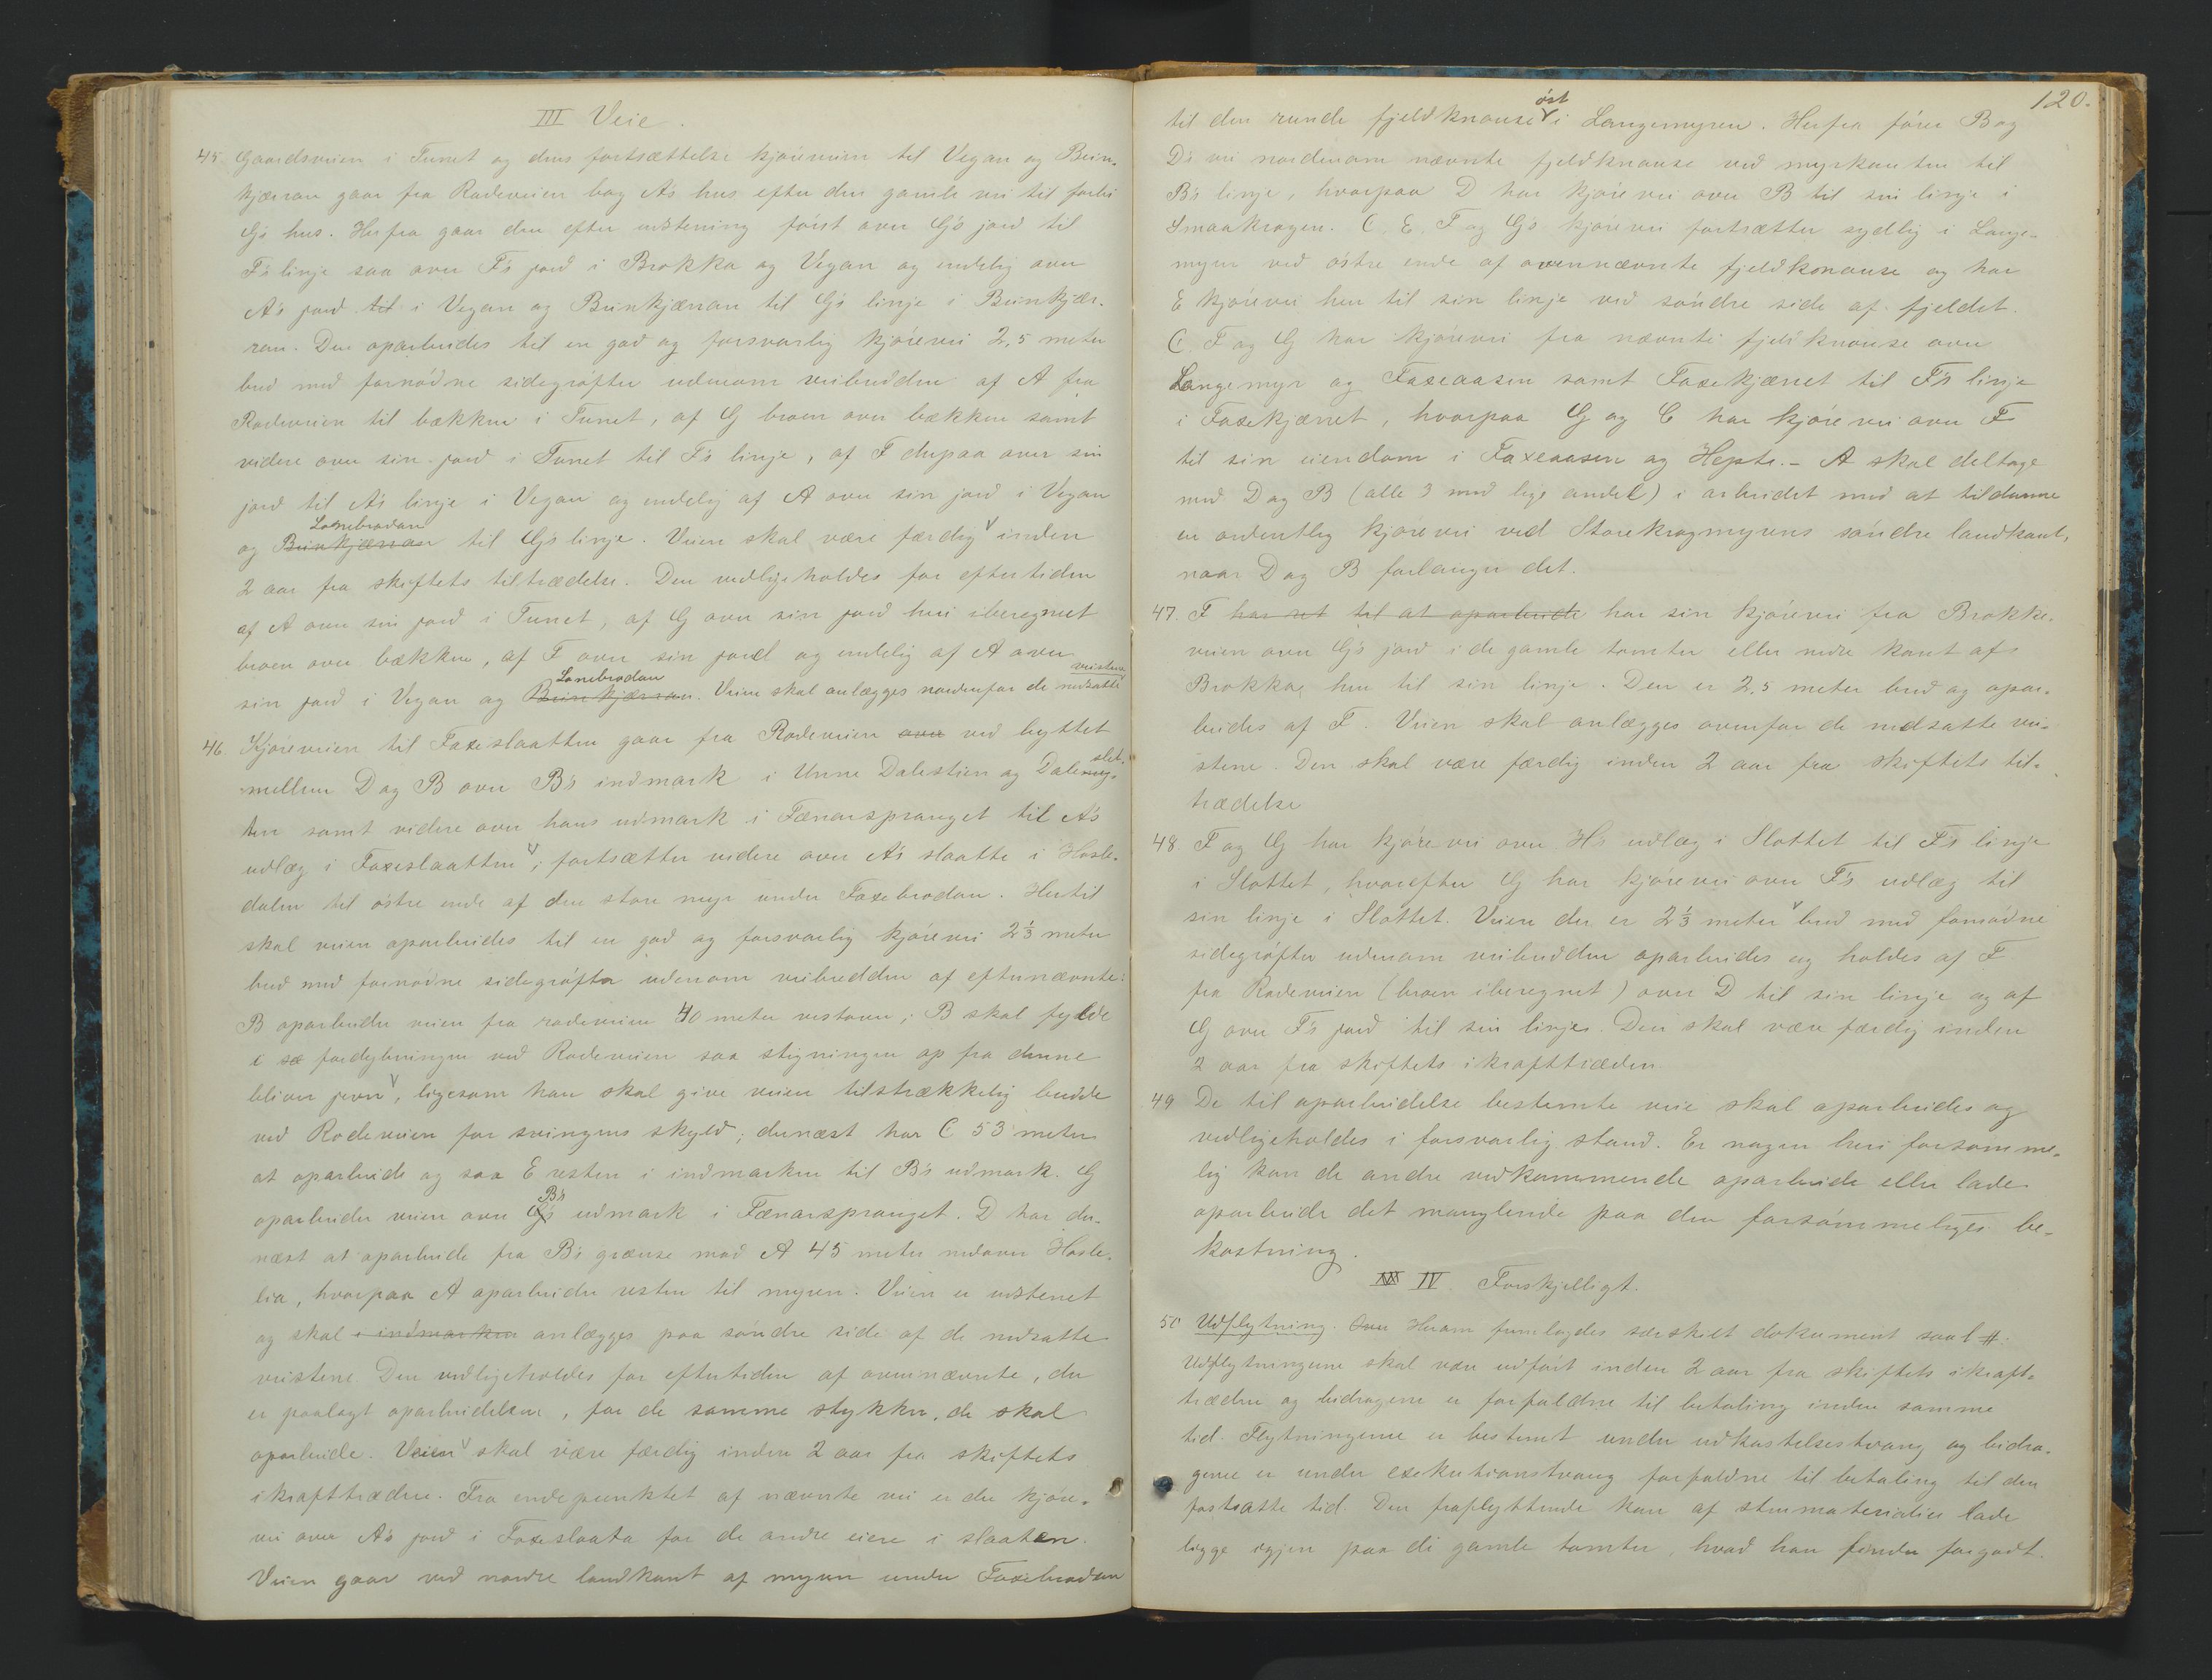 III Veie.
45. Gaardsveien i Tunet og dens fortsættelse kjøreveien til Vegan og Bein-
kjærran gaar fra Rodeveien bag A's hus efter den gamle vei til forbi
G's hus. Herfra gaar den efter udstening først over G's jord til
F's linje saa over F's jord i Brokka og Vegan og endelig over
A's jord til i Vegan og Beinkjærran til G's linje i Beinkjær-
ran. Den oparbeides til en god og forsvarlig kjørevei 2,5 meter
bred med fornødne sidegrøfter udenom veibredden af A fra
Rodeveien til bækken i Tunet, af G broen over bækken samt
videre over sin jord i Tunet til F's linje, af F derpaa over sin
jord til A's linje i Vegan og endelig af A over sin jord i Vegan
Lonebrodan
og Beinkjærran til G's linje. Veien skal være færdig inden
2 aar fra skiftets tiltrædelse. Den vedligeholdes for eftertiden
af A over sin jord i Tunet, af G over sin jord heri iberegnet
broen over bækken, af F over sin jord og endelig af A over
Lonebrodan veistene
sin jord i Vegan og Beinkjærran. Veien skal anlægges nordenfor de nedsatte
46. Kjøreveien til Faxeslaatten gaar fra Rodeveien over ved byttet
slet-
mellem D og B over B's indmark i Unne Dalestien og Dalemyr-
ten samt videre over hans udmark i Fænarspranget til A's
udlæg i Faxeslaatten; fortsætter videre over A's slaatte i Hasle-
dalen til østre ende af den store myr under Faxebrodan. Hertil
skal veien oparbeides til en god og forsvarlig kjørevei 2 1/3 meter
bred med fornødne sidegrøfter udenom veibredden af efternævnte:
B oparbeider veien fra rodeveien 40 meter vestover; B skal fylde
i sæ fordybningen ved Rodeveien saa stigningen op fra denne
bliver jevn, ligesom han skal give veien tilstrækkelig bredde
ved Rodeveien for svingens skyld; dernæst har C 53 meter
at oparbeide og saa E resten i indmarken til B's udmark. G
B's
oparbeider veien over G's udmark i Fænarspranget. D har der-
næst at oparbeide fra B's grænse mod A 45 meter nedover Hasle-
lia, hvorpaa A oparbeider resten til myren. Veien er udstenet
og skal i indmarken anlægges paa søndre side af de nedsatte
veistene. Den vedligeholdes for eftertiden af ovennævnte, der
er paalagt oparbeidelsen, for de samme stykker, de skal
oparbeide. Veien skal være færdig inden 2 aar fra skiftets
ikrafttræden. Fra endepunktet af nævnte vei er der kjøre-
vei over A's jord i Faxeslaata for de andre eiere i slaaten.
Veien gaar ved nordre landkant af myren under Faxebrodan
120.
øst
til den runde fjeldknause i Langemyren. Herfra fører B og
D's vei nordenom nævnte fjeldknause ved myrkanten til
B's linje, hvorpaa D har kjørevei over B til sin linje i
Smaakrogen. C. E. F og G's kjørevei fortsætter sydlig i Lange-
myren ved østre ende af ovennævnte fjeldknause og har
E kjørevei hen til sin linje ved søndre side af fjeldet.
C. F og G har kjørevei fra nævnte fjeldknause over
Langemyr og Faxeaasen samt Faxekjærret til F's linje
i Faxekjærret, hvorpaa G og C har kjørevei over F
til sin eiendom i Faxeaasen og Hepte. - A skal deltage
med D og B (alle 3 med lige andel) i arbeidet med at tildanne
en ordentlig kjørevei ved Storekrogmyrens søndre landkant,
naar D og B forlanger det.
47. F har ret til at oparbeide har sin kjørevei fra Brokke-
veien over G's jord i de gamle tomter eller nedre kant af
Brokka, hen til sin linje. Den er 2,5 meter bred og opar-
beides af F. Veien skal anlægges ovenfor de nedsatte vei-
stene. Den skal være færdig inden 2 aar fra skiftets til-
trædelse
48. F og G har kjørevei over H's udlæg i Slottet til F's linje
i Slottet, hvorefter G har kjørevei over F's udlæg til
sin linje i Slottet. Veien der er 2 1/3 meter bred med fornødne
sidegrøfter udenom veibredden oparbeides og holdes af F
fra Rodeveien (broen iberegnet) over D til sin linje og af
G over F's jord til sin linje. Den skal være færdig inden
2 aar fra skiftets ikrafttræden
49 De til oparbeidelse bestemte veie skal oparbeides og
vedligeholdes i forsvarlig stand. Er nogen heri forsømme-
lig kan de andre vedkommende oparbeide eller lade
oparbeide det manglende paa den forsømmeliges be-
kostning.
IV. Forskjelligt.
50 Udflytning. Herom fremlagdes særskilt dokument saal #.
Udflytningerne skal være udført inden 2 aar fra skiftets ikraft-
træden og bidragene er forfaldne til betaling inden samme
tid. Flytningerne er bestemt under udkastelsestvang og bidra-
gene er under exekutionstvang forfaldne til betaling til den
fastsatte tid. Den fraflyttende kan af stenmaterialier lade
ligge igjen paa de gamle tomter, hvad han finder forgodt.